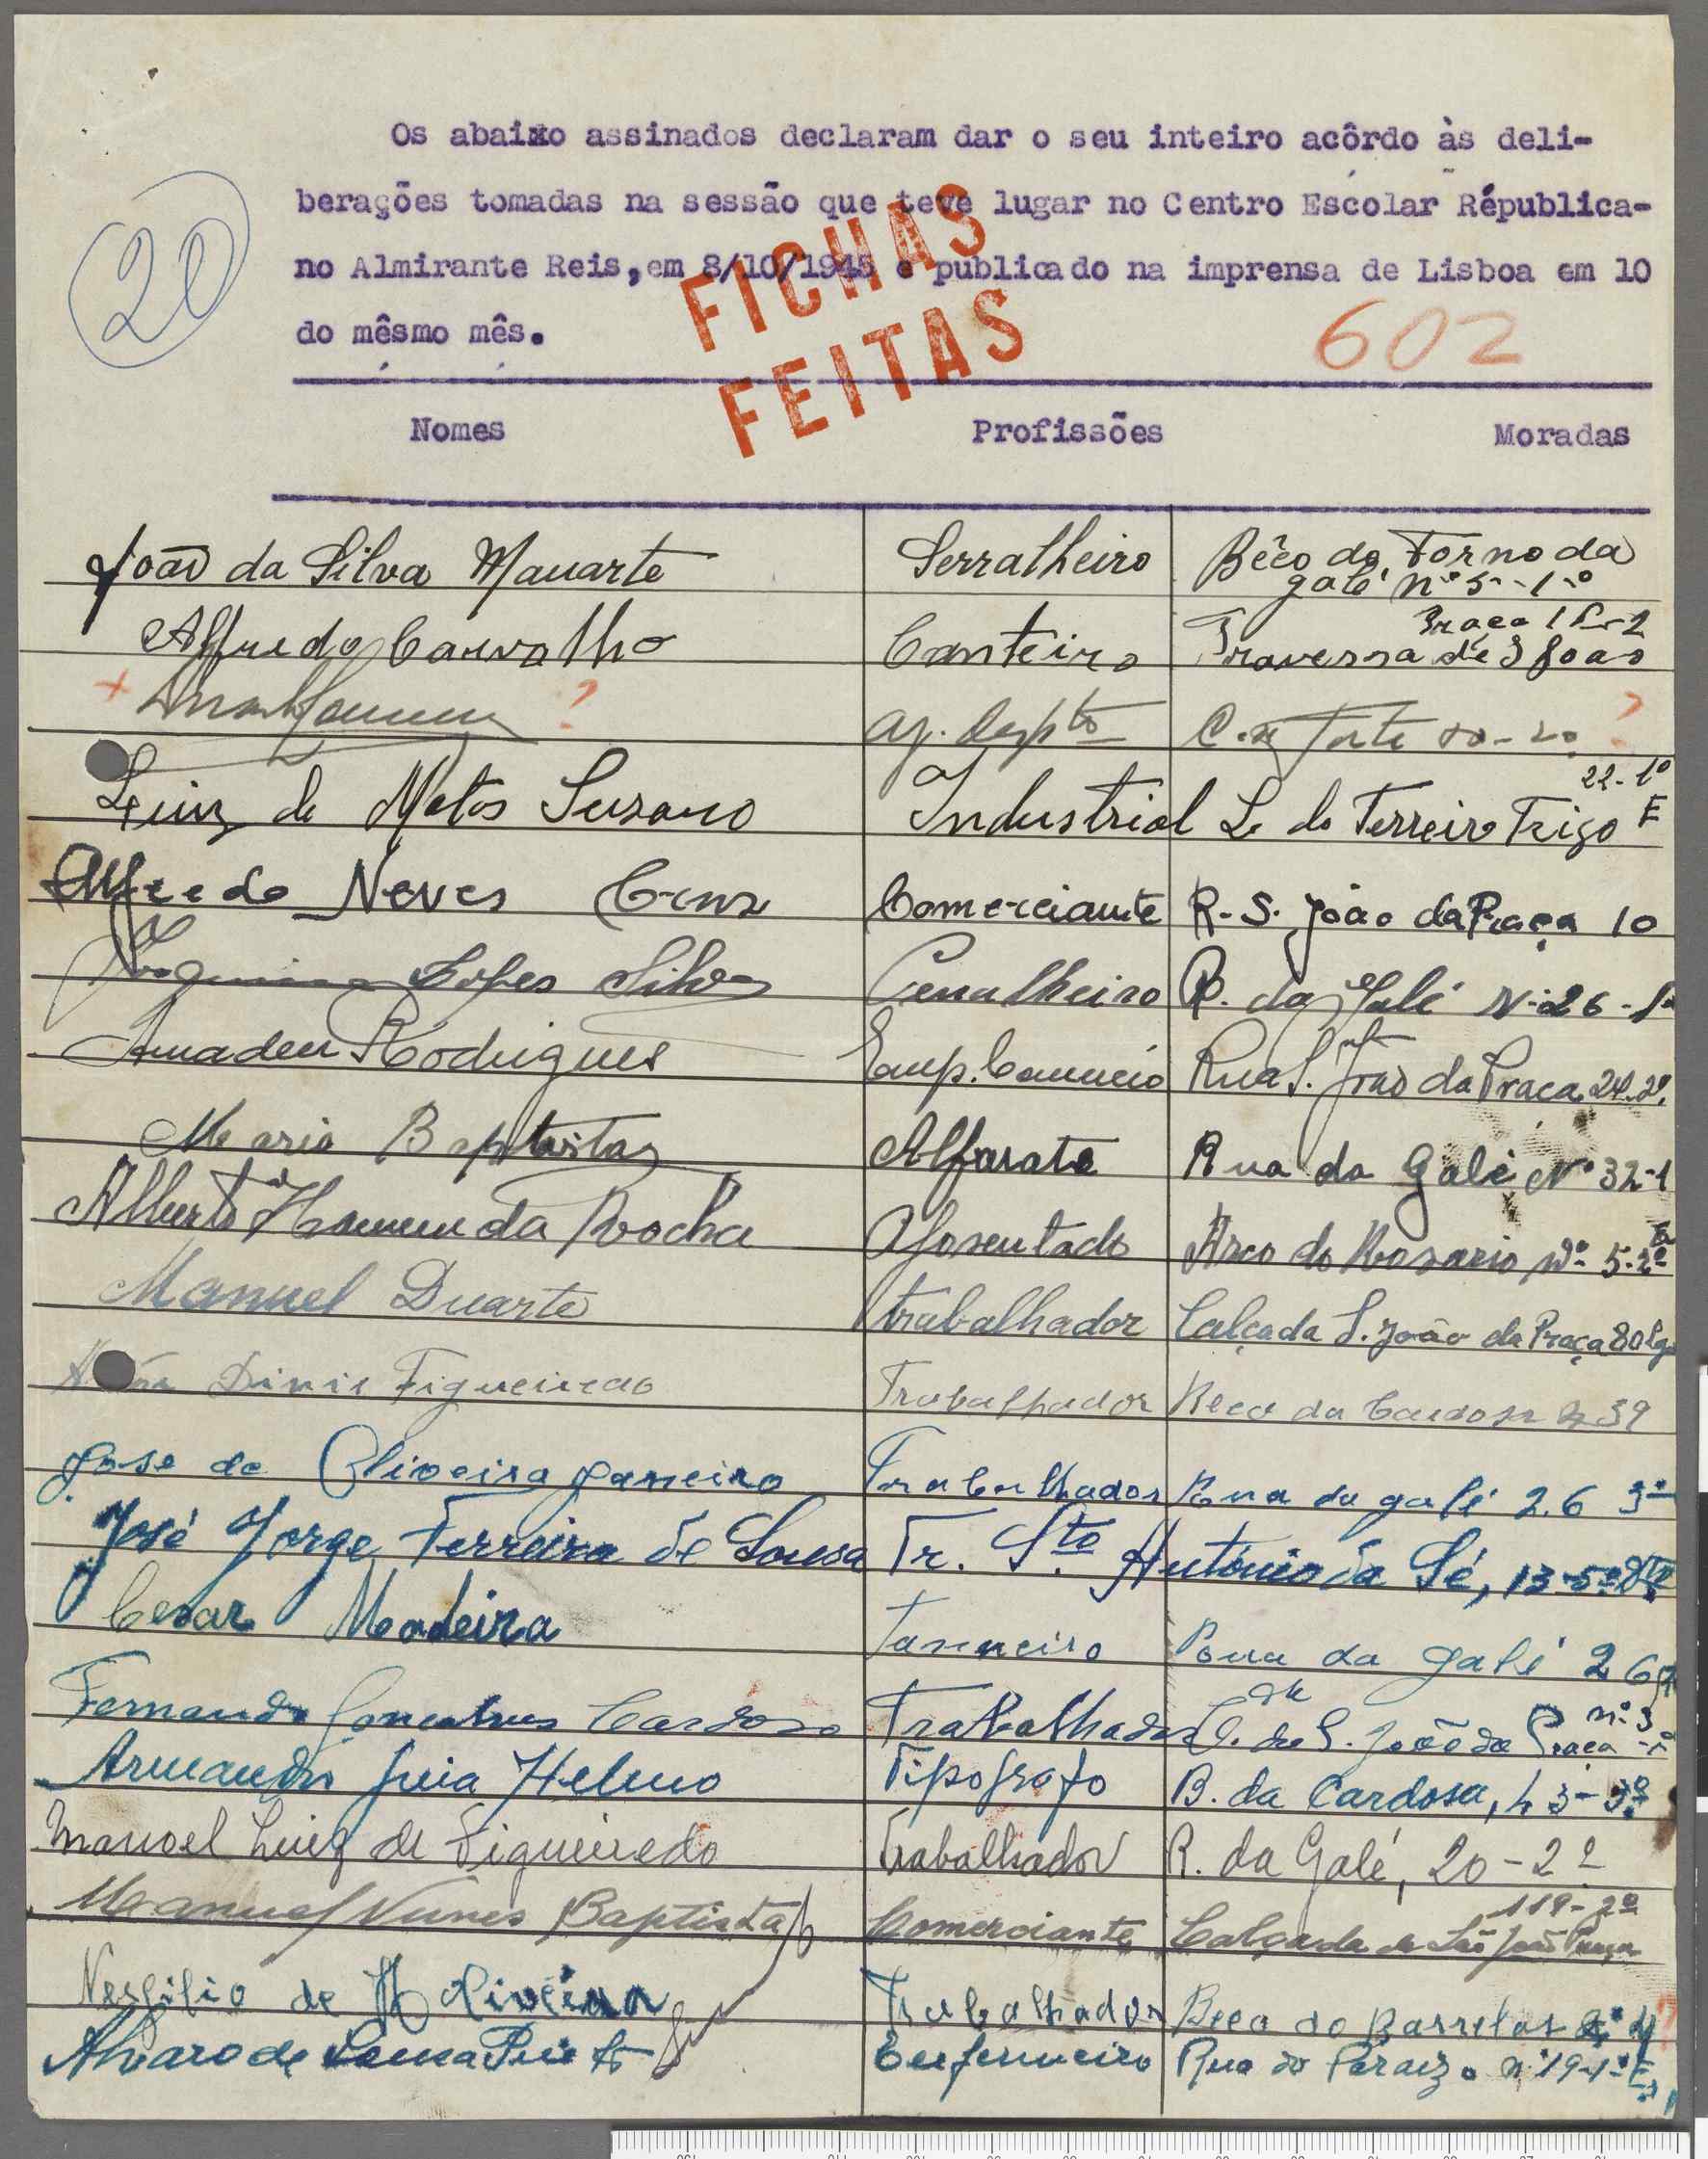 Os abaixo assinados declaram dar o seu inteiro acôrdo às deli-
berações tomadas na sessão que teve lugar no Centro Escolar Républica-
no Almirante Reis, em 8/10/1945 e publicado na imprensa de Lisboa em 10
do mêsmo mês.
20
FICHAS
FEITAS
602
Nomes Profissões Moradas
João da Silva Mauarte Serralheiro Bêco do Forno da
galé nº 5-1º
Alfredo Carvalho Canteiro Travessa de S João
Praça
? aj. ?
Luiz de Matos Suzano Industrial L. do Terreiro Trigo 22-1º E
Alfredo Neves Cruz Comerciante R. S. João da Praça 10
Joaquim Lopes Silva Serralheiro R. da Galé Nº 26-1º
Amadeu Rodrigues Emp. Comercio Rua S. João da Praça 24.2º
Mario Baptista Alfaiate Rua da Galé Nº 32-1
Alberto Homem da Rocha Aposentado Arco do Rosario Nº 5-2º
Manuel Duarte trabalhador Calçada S. João da Praça
Dinis Figueiredo Trabalhador Beco da Cardosa 39
Jose de Oliveira Janeiro Trabalhador Rua da galé 26 3º
José Jorge Ferreira de Sousa Tr. Stº António da Sé, 13-5º Dto
Cesar Madeira Tanoeiro Rua da galé 26
Fernando Gonçalves Cardoso Trabalhador C. de S. João da Praça nº 3
Armando Guia Helmo Tipografo B. da Cardosa, 43-3º
Manoel Luiz de Figueiredo Trabalhador R. da Galé, 20-2º
Manuel Nunes Baptista Comerciante Calçada de São João Praça 119-2º
Vergilio de Oliveira Trabalhador Beco do Barrelas
Alvaro de Sousa Enfermeiro Rua do Paraizo nº 19-1º E